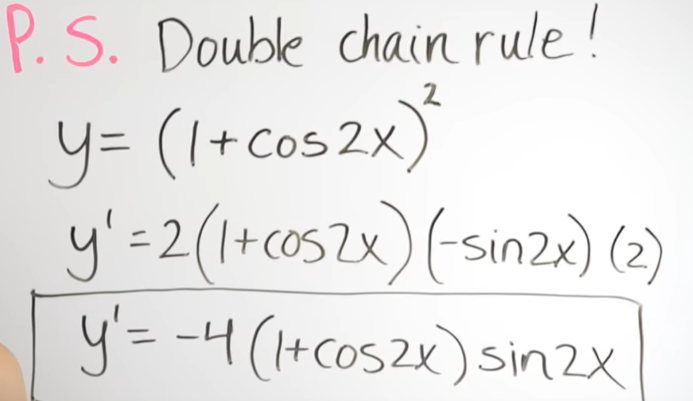 P.S. Double chain rule!
y = (1+cos2x)²
y' = 2(1+cos2x)(-sin2x)(2)
y' = -4(1+cos2x)sin2x